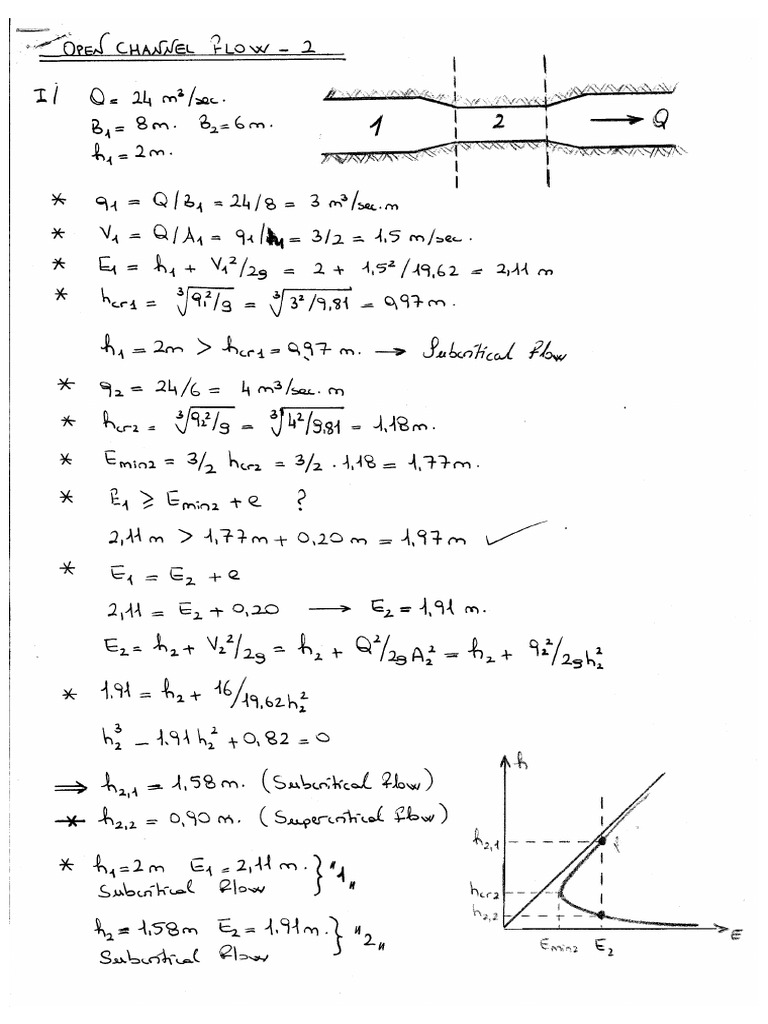 OPEN CHANNEL FLOW - 2
I/ Q = 24 m³/sec.
B₁ = 8m. B₂ = 6m.
h₁ = 2m.
1 2 → Q
* q₁ = Q/B₁ = 24/8 = 3 m³/sec.m
* V₁ = Q/A₁ = q₁/h₁ = 3/2 = 1,5 m/sec.
* E₁ = h₁ + V₁²/2g = 2 + 1,5²/19,62 = 2,11 m
* hcr₁ = ∛(q₁²/g) = ∛(3²/9,81) = 0,97 m.
h₁ = 2m > hcr₁ = 0,97 m. → Subcritical Flow
* q₂ = 24/6 = 4 m³/sec.m
* hcr₂ = ∛(q₂²/g) = ∛(4²/9,81) = 1,18 m.
* Emin₂ = 3/2 hcr₂ = 3/2 · 1,18 = 1,77 m.
* E₁ ⩾ Emin₂ + e ?
2,11 m > 1,77 m + 0,20 m = 1,97 m ✓
* E₁ = E₂ + e
2,11 = E₂ + 0,20 → E₂ = 1,91 m.
E₂ = h₂ + V₂²/2g = h₂ + Q²/2gA₂² = h₂ + q₂²/2gh₂²
* 1.91 = h₂ + 16/19,62h₂²
h₂³ - 1.91h₂² + 0,82 = 0
⇒ h₂,₁ = 1,58 m. (Subcritical Flow)
* h₂,₂ = 0,90 m. (Supercritical flow)
* h₁ = 2m E₁ = 2,11 m. } "1"
Subcritical Flow
h₂ = 1,58m E₂ = 1,91 m. } "2"
Subcritical Flow
h
h₂,₁
hcr₂
h₂,₂
Emin₂ E₂ E